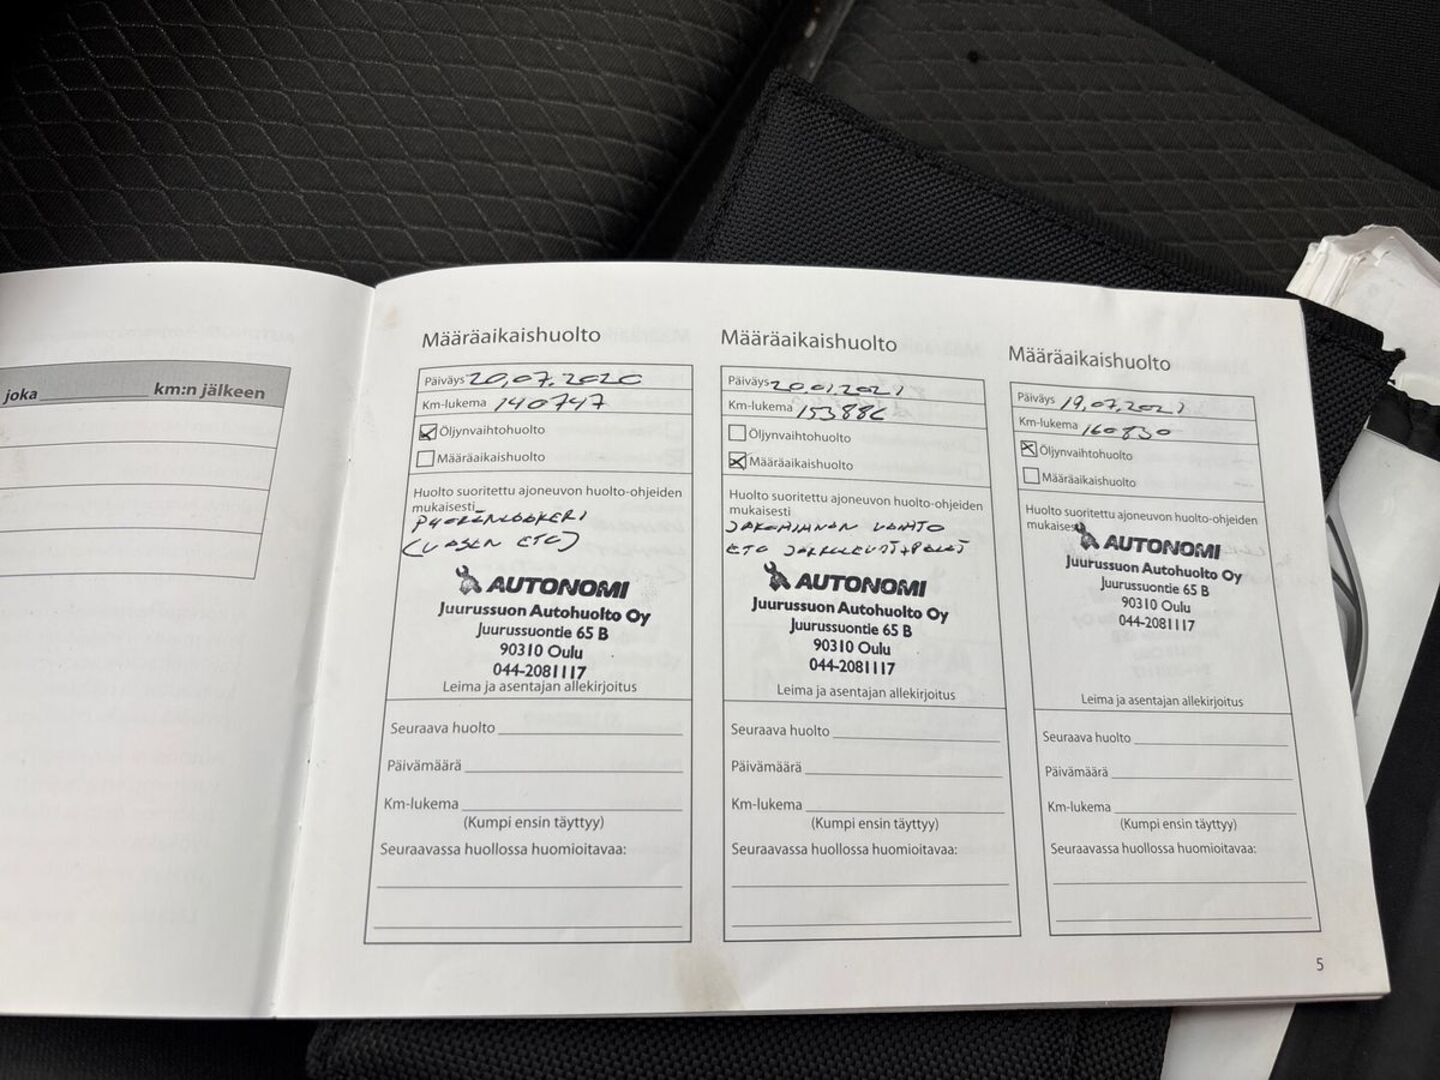 joka __________ km:n jälkeen
Määräaikaishuolto
Päiväys 20,07.2020
Km-lukema 140747
Öljynvaihtohuolto
Määräaikaishuolto
Huolto suoritettu ajoneuvon huolto-ohjeiden
mukaisesti
PYÖRÄNLAAKERI
(VASEN ETU)
AUTONOMI
Juurussuon Autohuolto Oy
Juurussuontie 65 B
90310 Oulu
044-2081117
Leima ja asentajan allekirjoitus
Seuraava huolto
Päivämäärä
Km-lukema
(Kumpi ensin täyttyy)
Seuraavassa huollossa huomioitavaa:
Määräaikaishuolto
Päiväys 20.01.2021
Km-lukema 153886
Öljynvaihtohuolto
Määräaikaishuolto
Huolto suoritettu ajoneuvon huolto-ohjeiden
mukaisesti
JAKOHIHNAN VAIHTO
ETU JARRULEVYT+PALAT
AUTONOMI
Juurussuon Autohuolto Oy
Juurussuontie 65 B
90310 Oulu
044-2081117
Leima ja asentajan allekirjoitus
Seuraava huolto
Päivämäärä
Km-lukema
(Kumpi ensin täyttyy)
Seuraavassa huollossa huomioitavaa:
Määräaikaishuolto
Päiväys 19,07,2021
Km-lukema 160830
Öljynvaihtohuolto
Määräaikaishuolto
Huolto suoritettu ajoneuvon huolto-ohjeiden
mukaisesti
AUTONOMI
Juurussuon Autohuolto Oy
Juurussuontie 65 B
90310 Oulu
044-2081117
Leima ja asentajan allekirjoitus
Seuraava huolto
Päivämäärä
Km-lukema
(Kumpi ensin täyttyy)
Seuraavassa huollossa huomioitavaa:
5